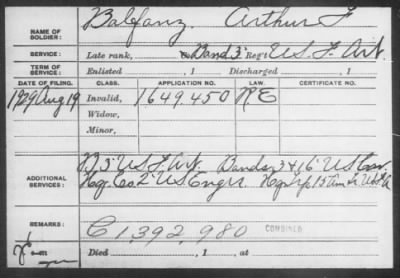 NAME OF SOLDIER: Balfanz, Arthur F
SERVICE: Late rank, Band 3" Reg't U.S. F. Art.
TERM OF SERVICE: Enlisted , 1 Discharged , 1
DATE OF FILING. CLASS. APPLICATION NO. LAW. CERTIFICATE NO.
1929 Aug 19 Invalid, 1649.450 R E
Widow,
Minor,
D, 5" U.S. F. Art. Bands 3 & 16" U.S. Cav.
ADDITIONAL SERVICES: Hq. Co. 2" U.S. Engrs. 15
REMARKS: C 1,392,980 COMBINED
Died , 1 , at